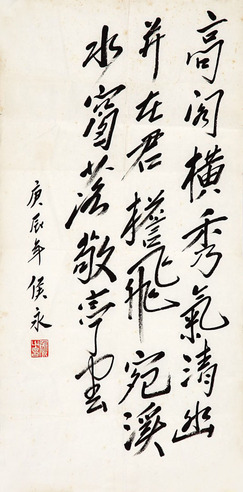 高阁横秀氣清幽
并在君檐飛宛溪
水窗落敬亭雲
庚辰年侯永